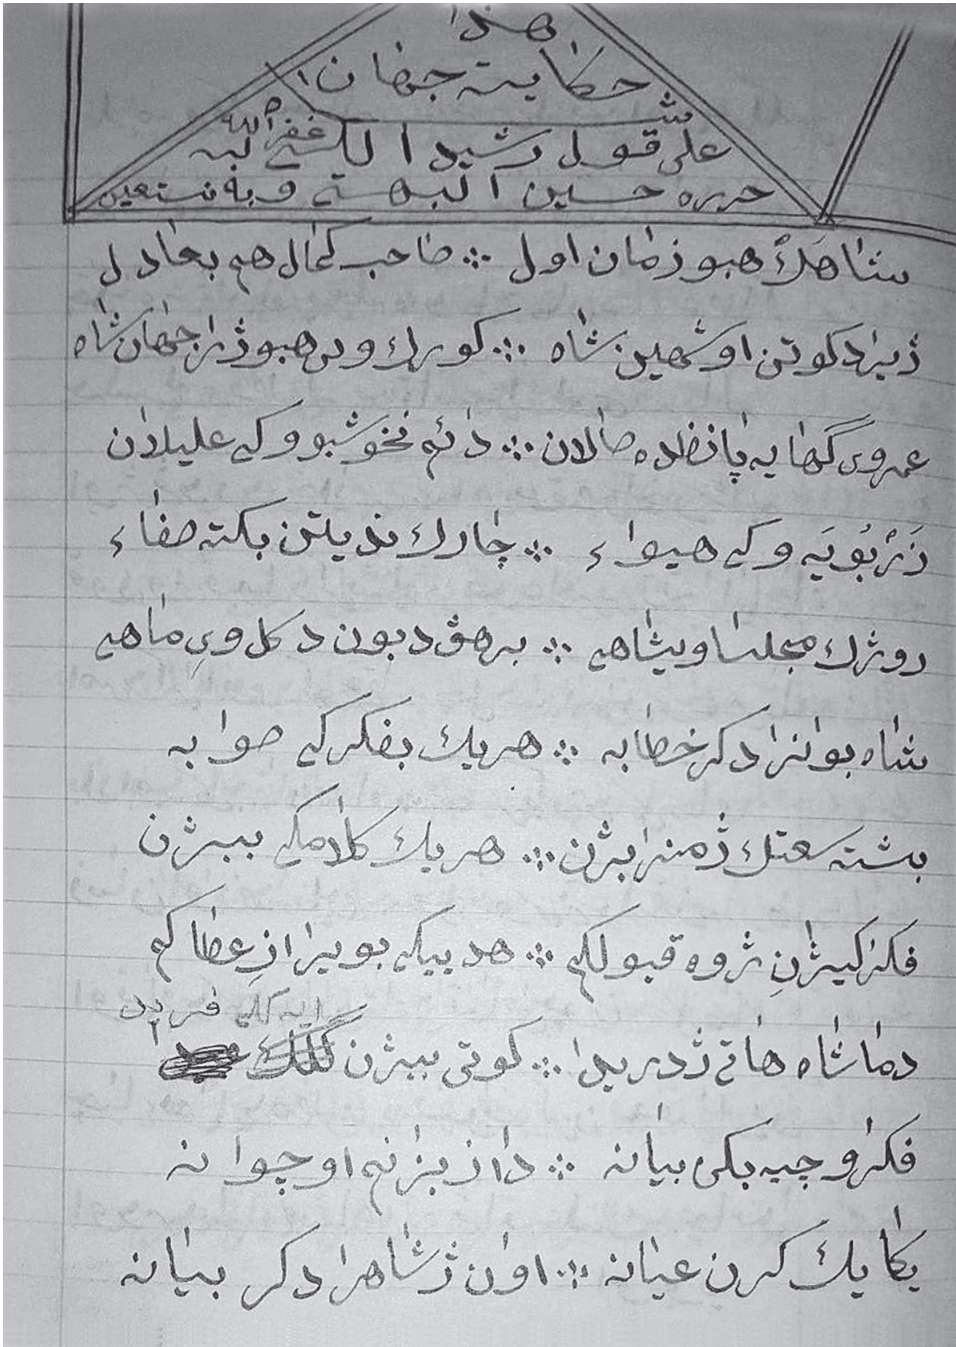 هذا
حكاية جهان
شا
على قول رشيد الكـ غفر الله له
حرره حسين البهـ وبه نستعين
شاهك هبو زمان اول ∴ صاحب كمال هم بعادل
ژيرا دكوتن او شهين شاه ∴ كورك وى هبو ژرا جهان شاه
عمر وى گهايه پانظده صالان ∴ دائم نخوشبو وكى عليلان
زر بويه وكى هيواء ∴ چارك نديتن بكته صفاء
روژك مجلسا ويشاهى ∴ برهڤ دبون د كل وى ماهى
شاه بوانرا دكر خطابه ∴ هريك بفكركى صوابه
بشته سعتك ژمنرا بژن ∴ هريك كلامكى ببـژن
فكرا كيژن ژوه قبولكم ∴ هدييكى بويرا از عطاكم
دما شاه هاتى ژدريدا ∴ كوتى ببيژن ايه كلى فريدا
فكرا وچيه بكى بيانه ∴ دا از بزانم اوچوانه
يكايك كرن عيانه ∴ اوان ژشاهرا دكر بيانه